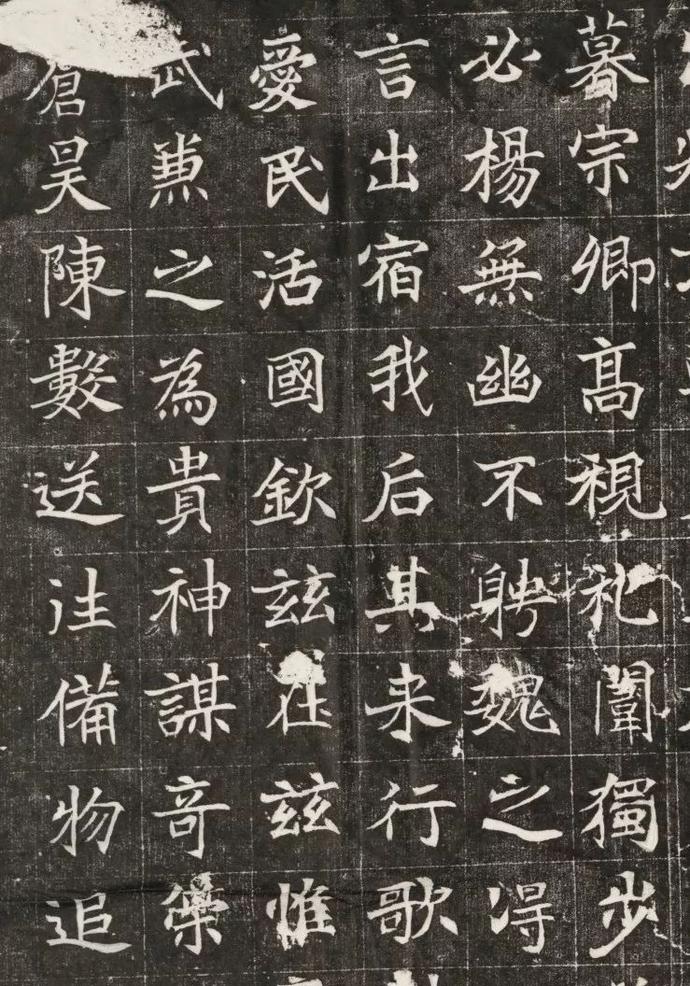 暮宗卿髙視礼闈獨步
必楊無幽不聘魏之淂
言出宿我后其来行歌
愛民活國欽兹在兹惟
武兼之為貴神謀竒策
倉昊陳數送往備物追